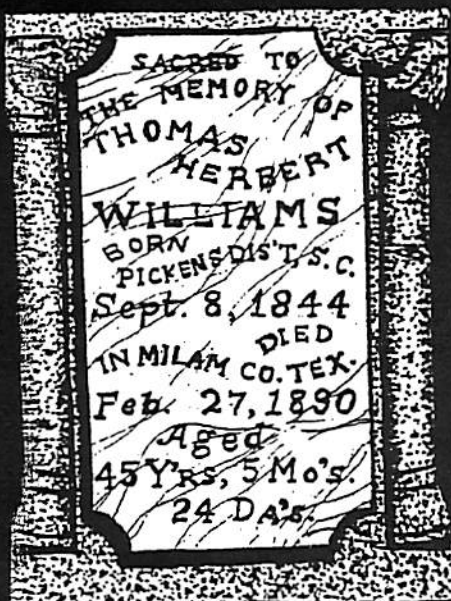 SACRED TO
THE MEMORY OF
THOMAS
HERBERT
WILLIAMS
BORN
PICKENS DIS'T, S.C.
Sept. 8, 1844
DIED
IN MILAM CO. TEX.
Feb. 27, 1890
Aged
45 Y'RS, 5 MO'S.
24 DA'S.